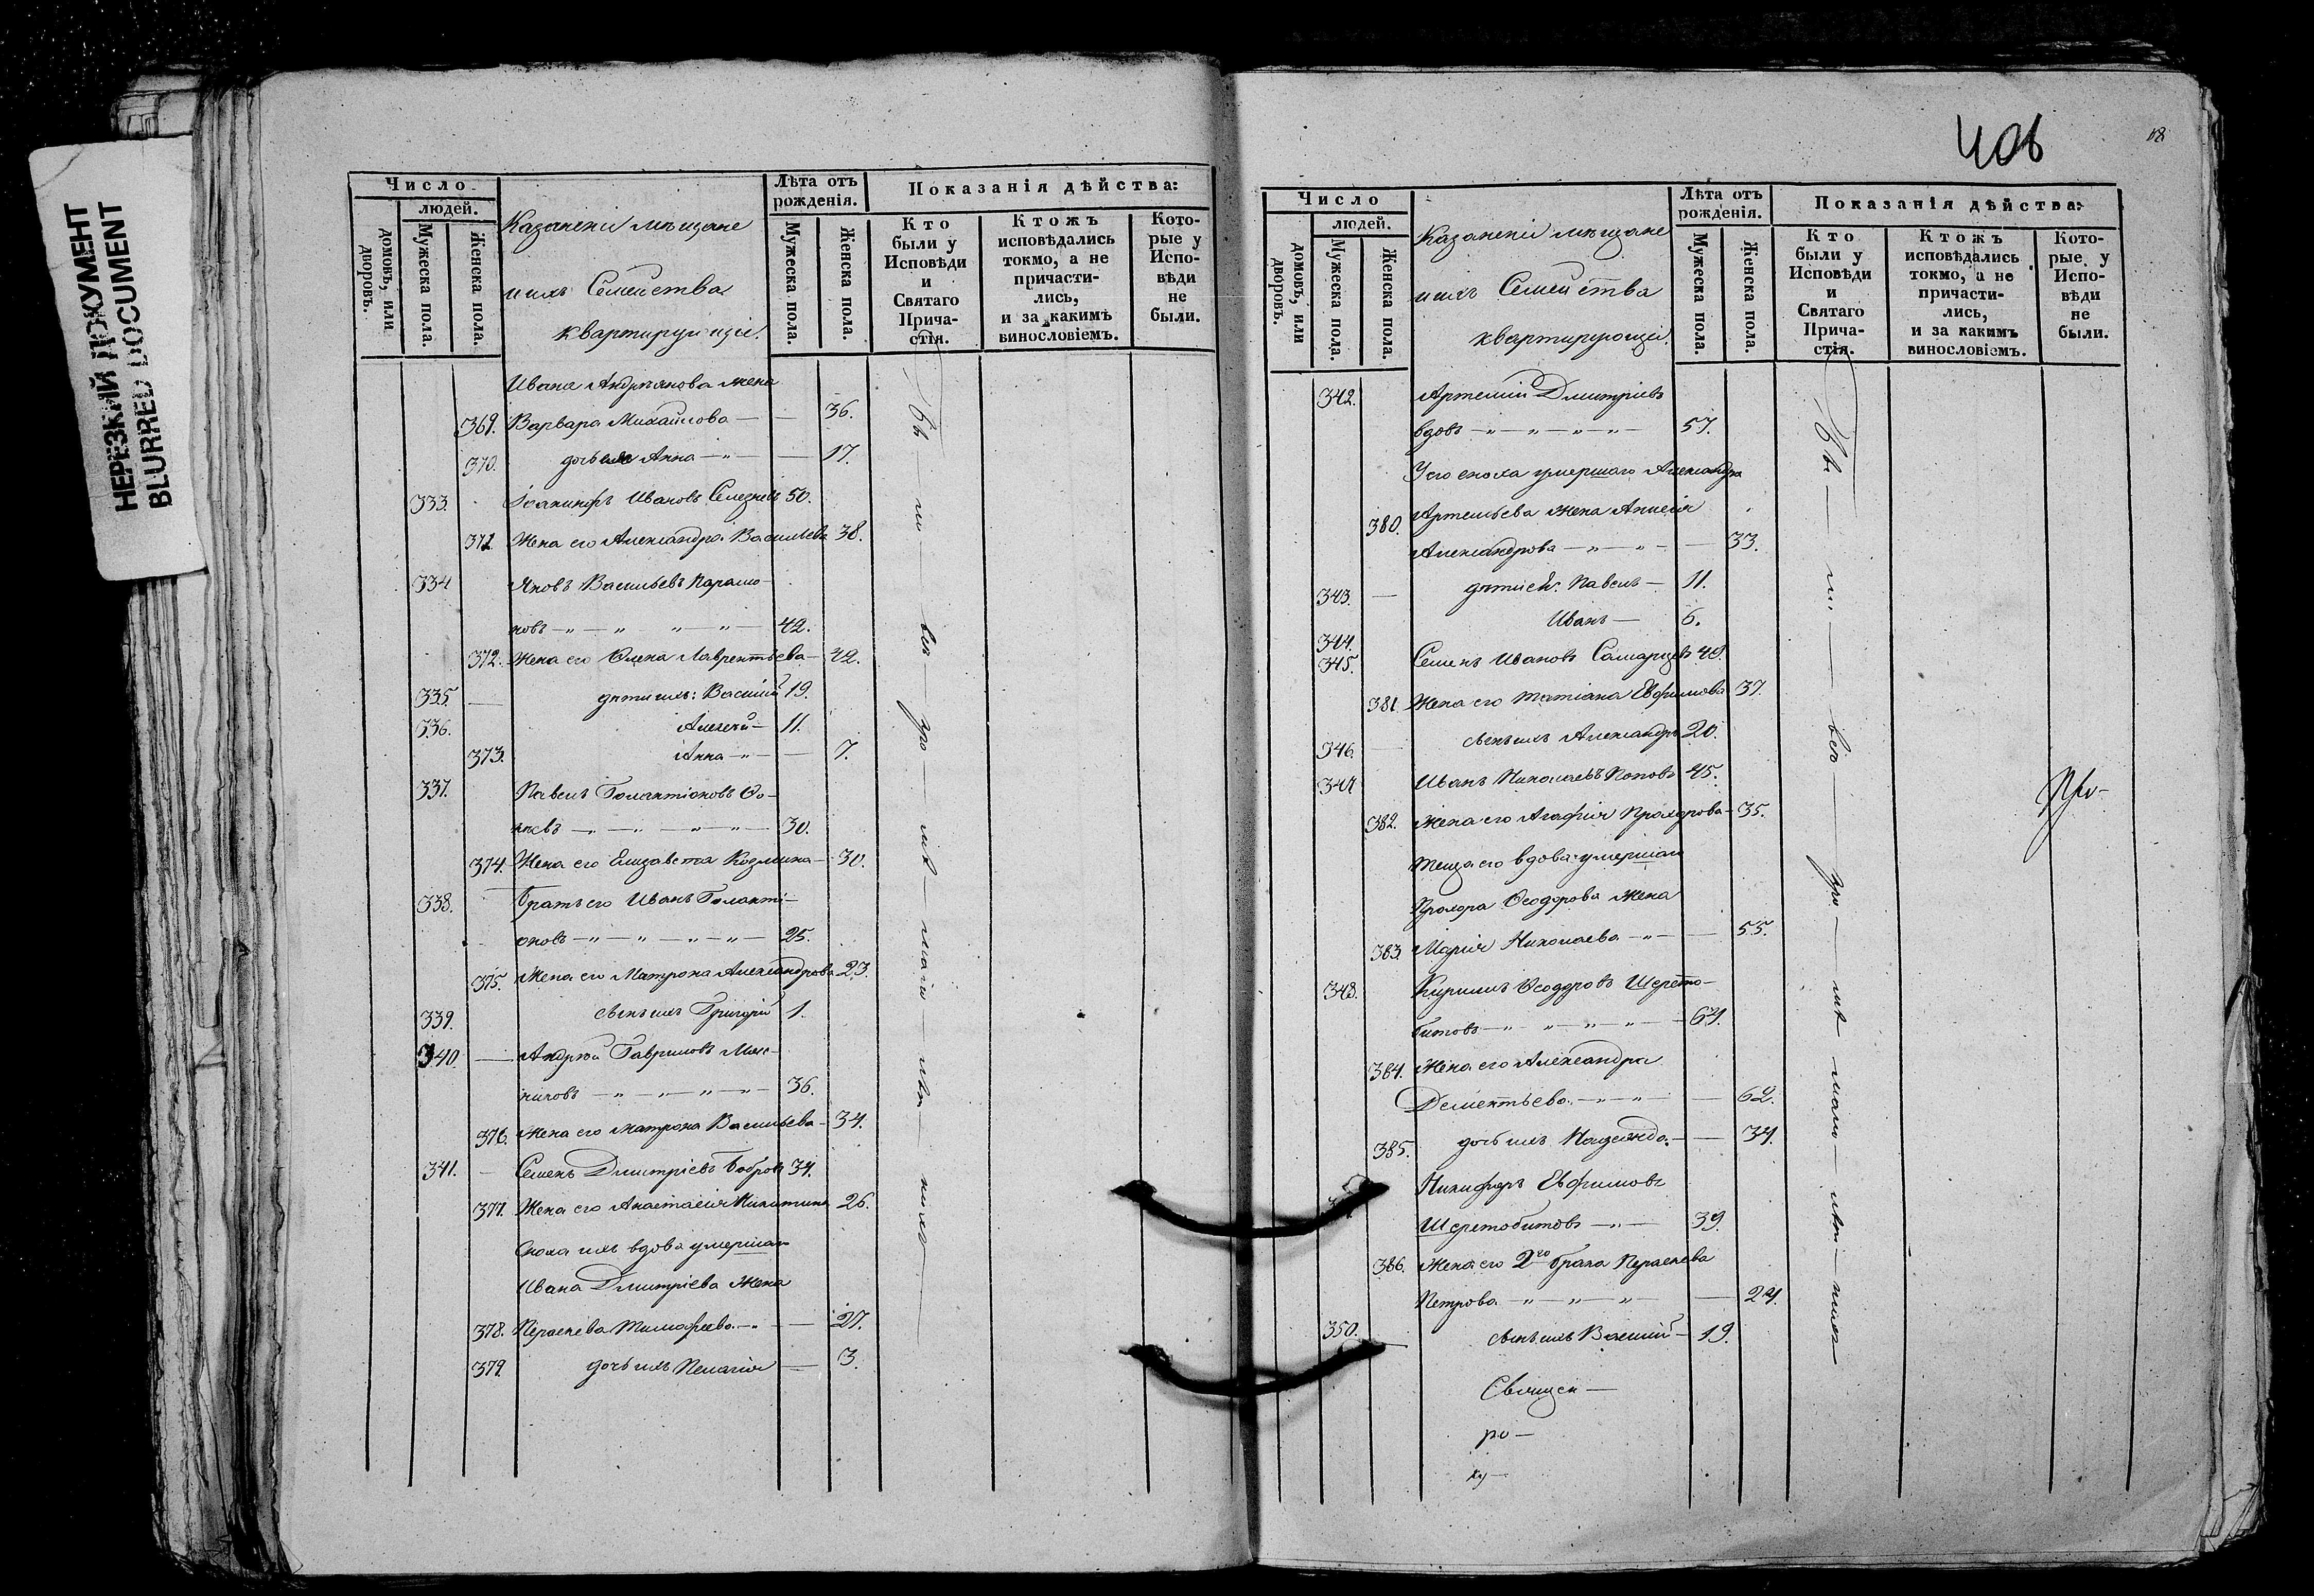 НЕРЕЗКИЙ ДОКУМЕНТ
BLURRED DOCUMENT
Число
людей.
домовъ, или дворовъ.
Мужеска пола.
Женска пола.
Казанскіи мѣщане
и ихъ Семейства
квартирующіе.
Лѣта отъ рожденія.
Мужеска пола.
Женска пола.
Показанія дѣйства:
Кто были у Исповѣди и Святаго Причастія.
Ктожъ исповѣдались токмо, а не причастились, и за какимъ винословіемъ.
Которые у Исповѣди не были.
Ивана Андреянова жена
369. Варвара Михайлова — — 36.
370. дочь Анна — „ — 17.
333. Іоакинфъ Ивановъ Селезневъ 50.
371. Жена его Александра Васильева 38.
334 Яковъ Васильевъ Парамо-
новъ — „ — „ „ — „ — 42.
372. Жена его Елена Лаврентьева — 42.
335. — дѣти ихъ: Василій 19.
336. Алексей — 11.
373. Анна — „ — 7.
337. Павелъ Галактіоновъ Фо-
кѣевъ — „ — „ — „ — „ — 30.
374. Жена его Елизавета Козмина — 30.
338. Братъ его Иванъ Галакті-
оновъ — „ — „ — „ — „ — 25.
375. Жена его Матрона Александрова 23.
339. сынъ ихъ Григорій 1.
340. — Андрей Гавриловъ
— „ — „ — „ — „ — 36.
376. Жена его Матрона Васильева — 34.
341. — Семенъ Дмитріевъ Бобровъ 34.
377. Жена его Анастасія Никитина 26.
Сноха ихъ вдова умершаго
Ивана Дмитріева Жена
378. Параскева Тимофеева — „ — 27.
379. дочь ихъ Пелагія — 3.
408
Число
людей.
домовъ, или дворовъ.
Мужеска пола.
Женска пола.
Казанскіи мѣщане
и ихъ Семейства
квартирующіе.
Лѣта отъ рожденія.
Мужеска пола.
Женска пола.
Показанія дѣйства:
Кто были у Исповѣди и Святаго Причастія.
Ктожъ исповѣдались токмо, а не причастились, и за какимъ винословіемъ.
Которые у Исповѣди не были.
342. Артемій Дмитріевъ
вдовъ — „ — „ — „ — „ — 57.
У его сноха умершаго Александра
380. Артемьева жена Анисія
Александрова — „ — „ — — 33.
343. — дѣти ея: Павелъ — 11.
344. Иванъ — 6.
345. Семенъ Ивановъ Самарцевъ 48.
381. Жена его Татіана Евфимова 37.
346. — сынъ ихъ Александръ 20.
347 Иванъ Николаевъ Поповъ 45.
382. Жена его Агафія Прохорова — 35.
Теща его вдова умершаго
Прохора Ѳеодорова Жена
383. Марія Николаева — „ — — 55.
348. Кирилъ Ѳеодоровъ Шерсто-
битовъ — „ — „ — „ — „ — 64.
384. Жена его Александра
Дементьева — „ — „ — — 62.
385. дочь ихъ Надежда — — 34.
Никифоръ Евфимовъ
Шерстобитовъ — „ — 39.
386. Жена его 2го брака Параскева
Петрова — „ — „ — „ — 24.
350. сынъ ихъ Василій — 19.
Священ —
ро —
ку —